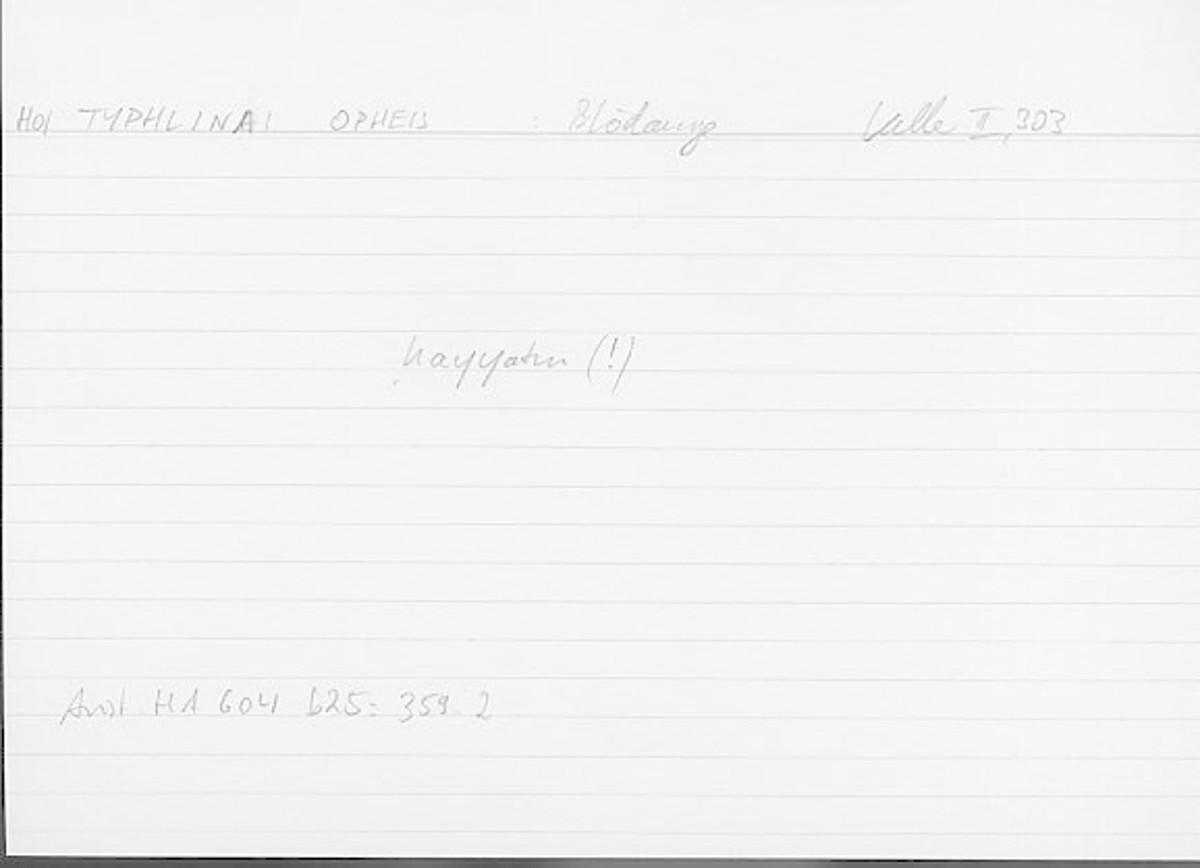 HOI TYPHLINAI OPHEIS : Blödauge Valle II, 303
ḥayyatun (!)
Arist. HA 604 b25: 359. 2